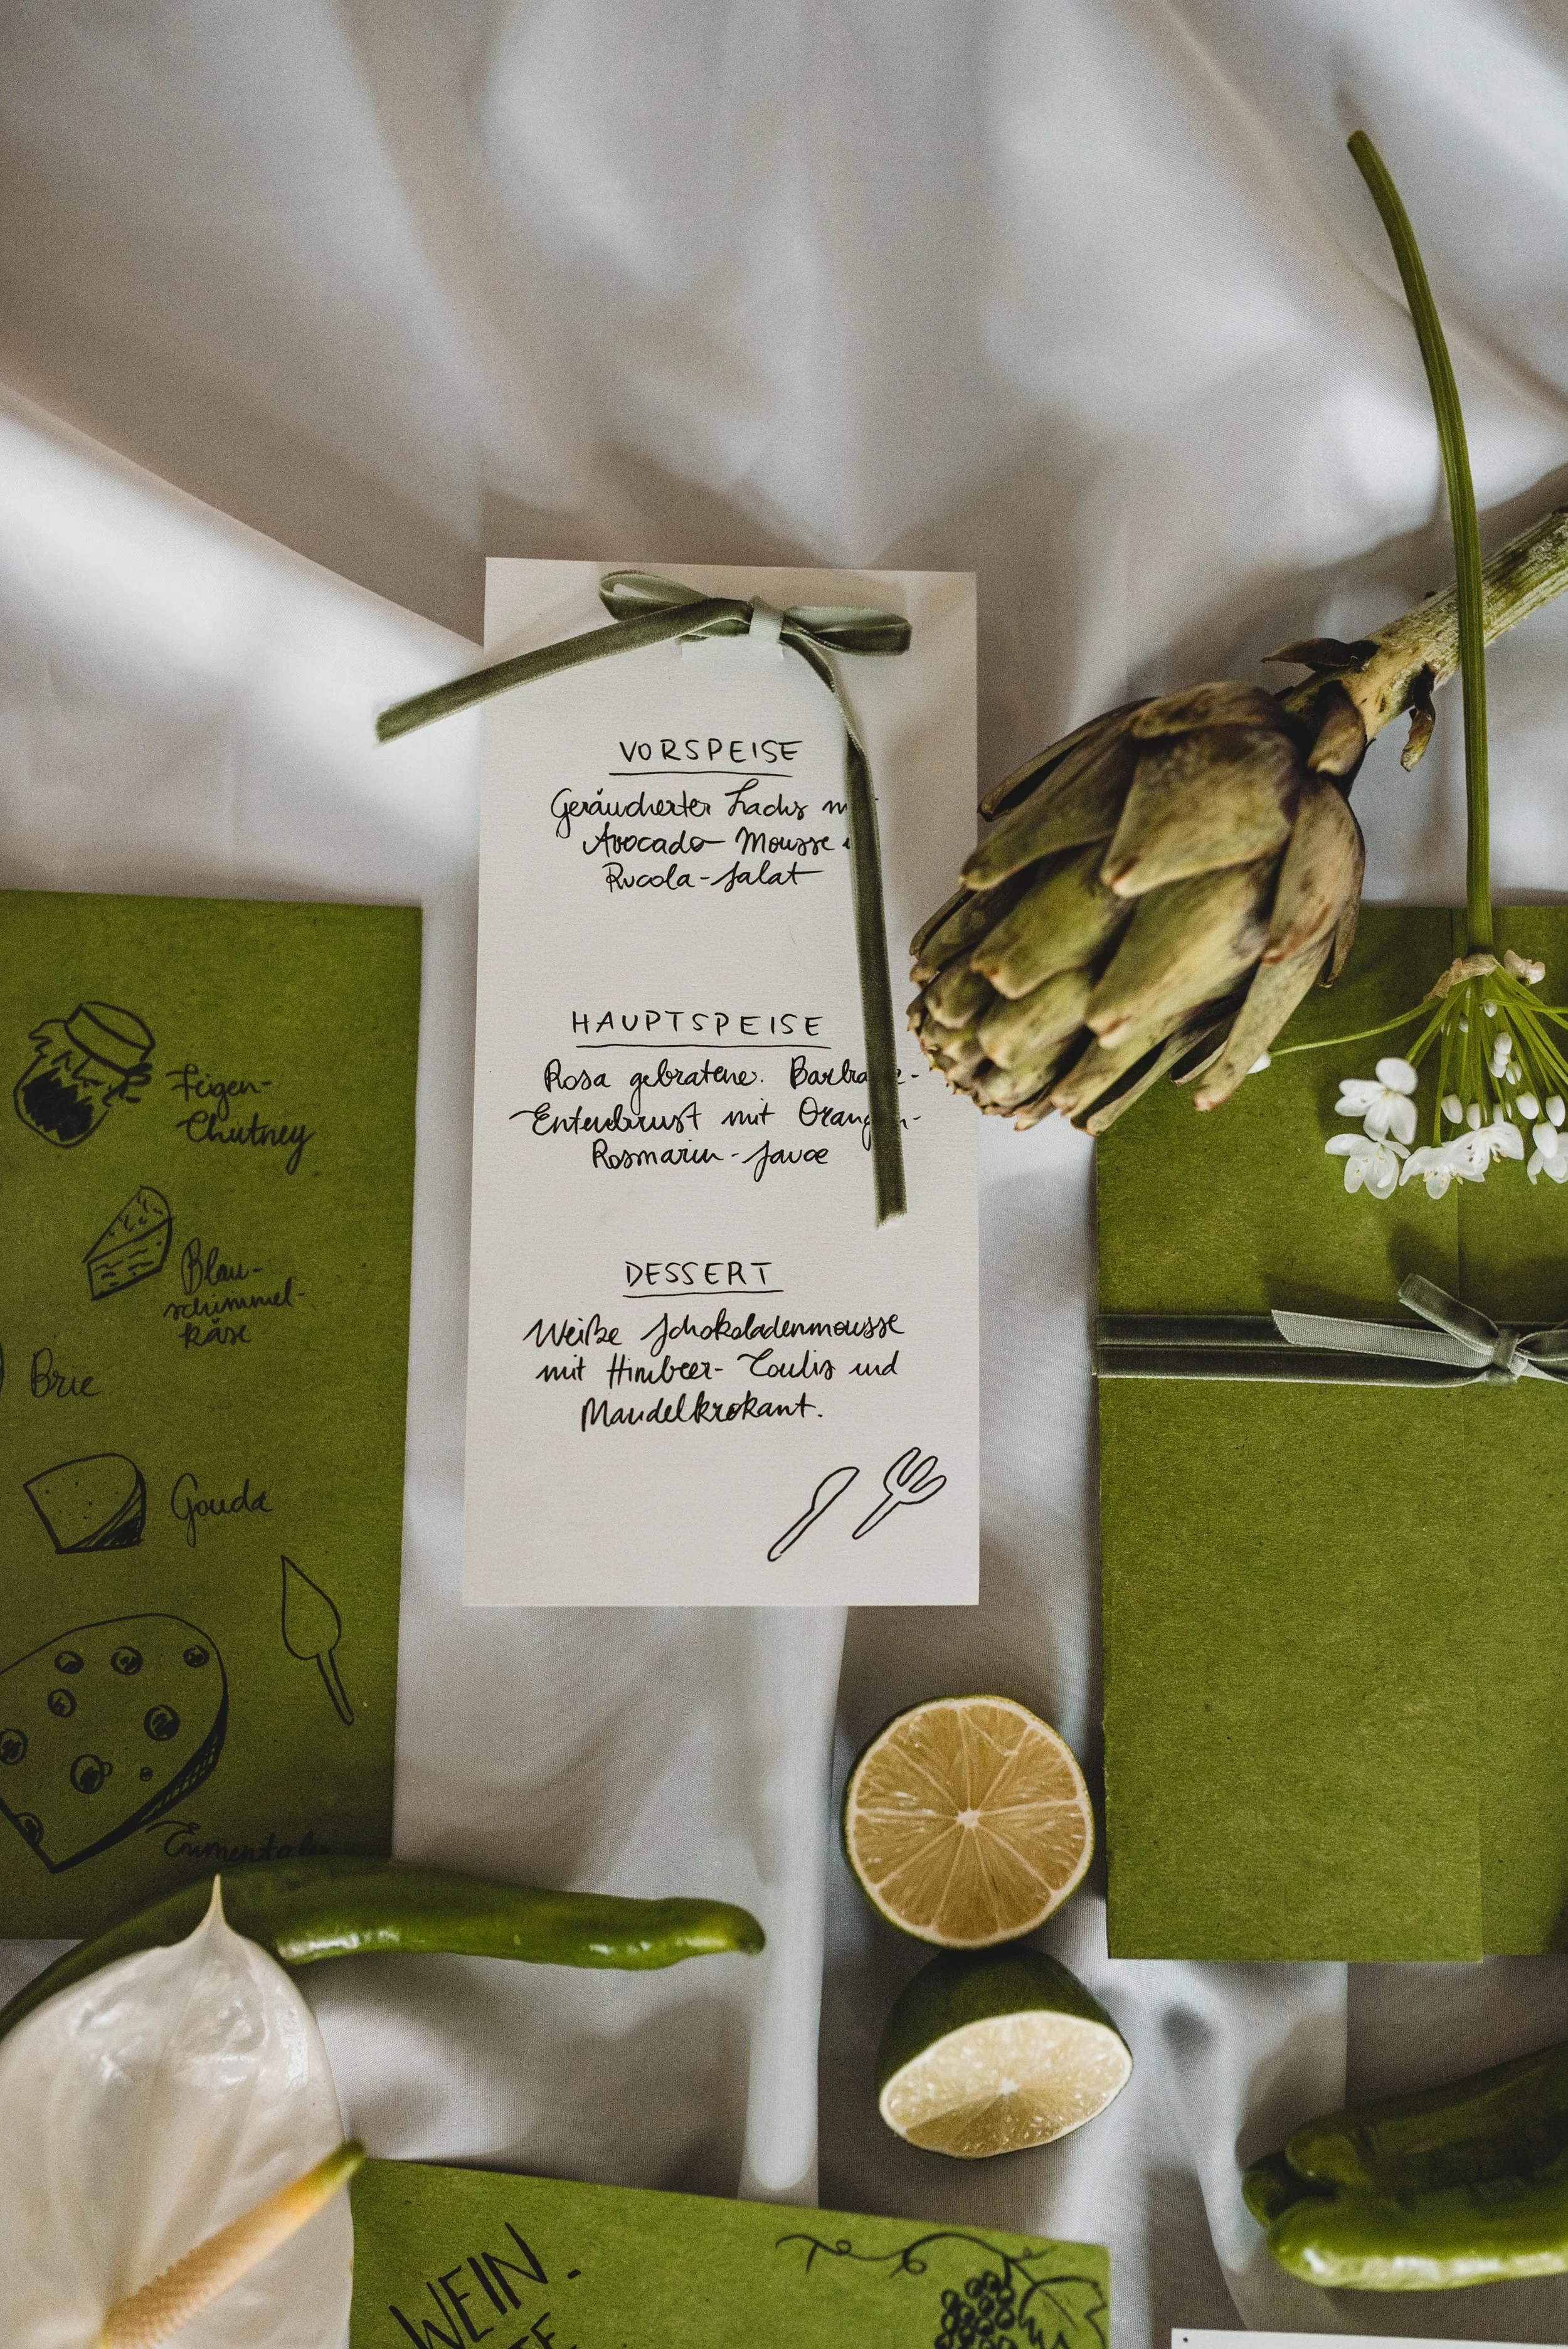 VORSPEISE
Geräucherter Lachs
Avocado-Mousse
Rucola-Salat
HAUPTSPEISE
Rosa gebratene
Entenbrust mit
Rosmarin-Sauce
DESSERT
Weiße Schokoladenmousse
mit Himbeer-Coulis und
Mandelkrokant.
Feigen-
Chutney
Blau-
schimmel-
käse
Brie
Gouda
Emmentaler
WEIN-